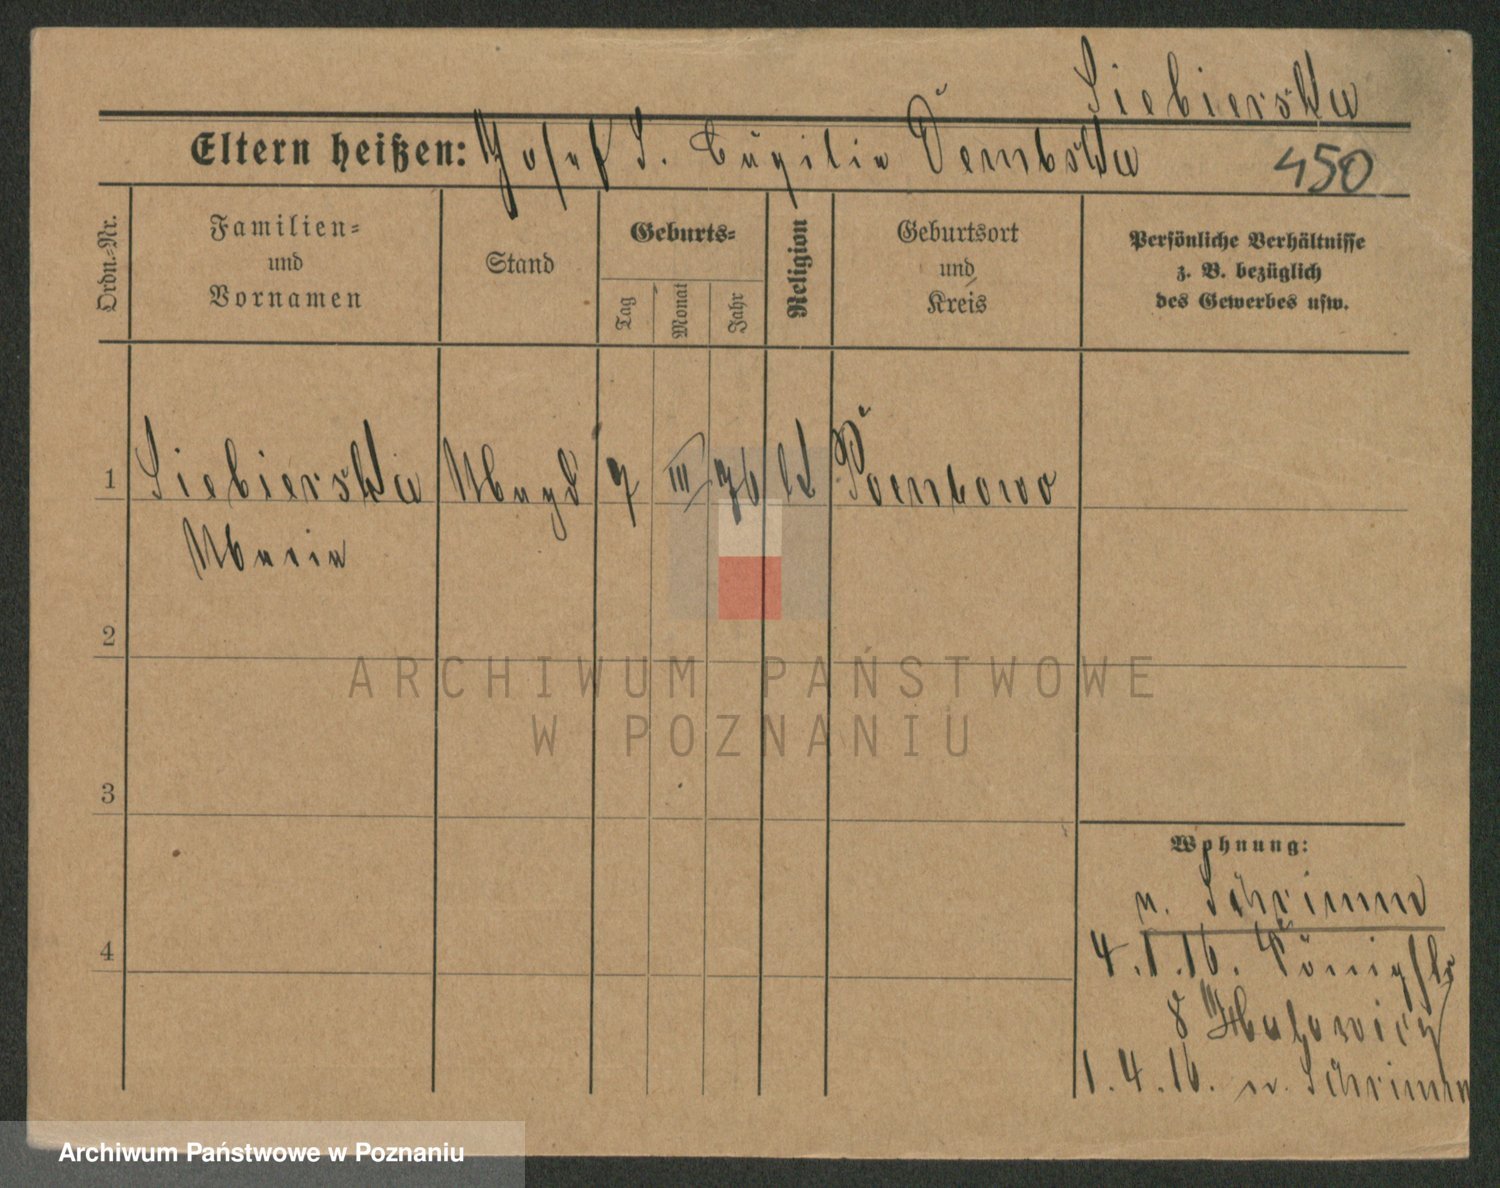 Siebierska
Eltern heißen: Josef S. Cäzilie Dembska
450
Ordn.-Nr.
Familien-
und
Vornamen
Stand
Geburts-
Tag
Monat
Jahr
Religion
Geburtsort
und
Kreis
Persönliche Verhältnisse
z. B. bezüglich
des Gewerbes usw.
1 Siebierska Magd 7 III 76 k
Maria
2
3
4
Wohnung:
n. Schrimm
4.1.16. Königstr
8
1.4.16. n. Schrimm
ARCHIWUM PAŃSTWOWE
W POZNANIU
Archiwum Państwowe w Poznaniu